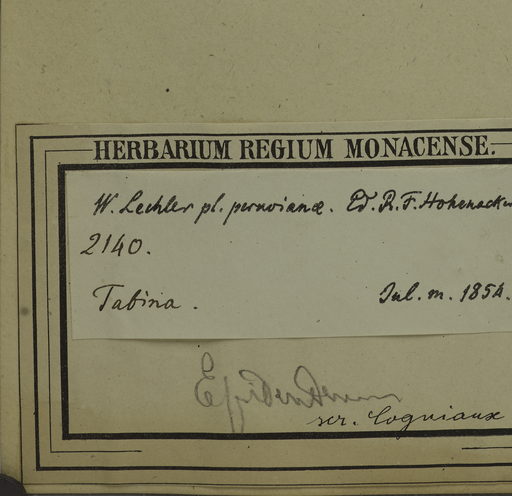 HERBARIUM REGIUM MONACENSE.
W. Lechler pl. peruvianæ. Ed. R. F. Hohenacker
2140.
Tabina. Jul. m. 1854.
Epidendrum
scr. Cogniaux